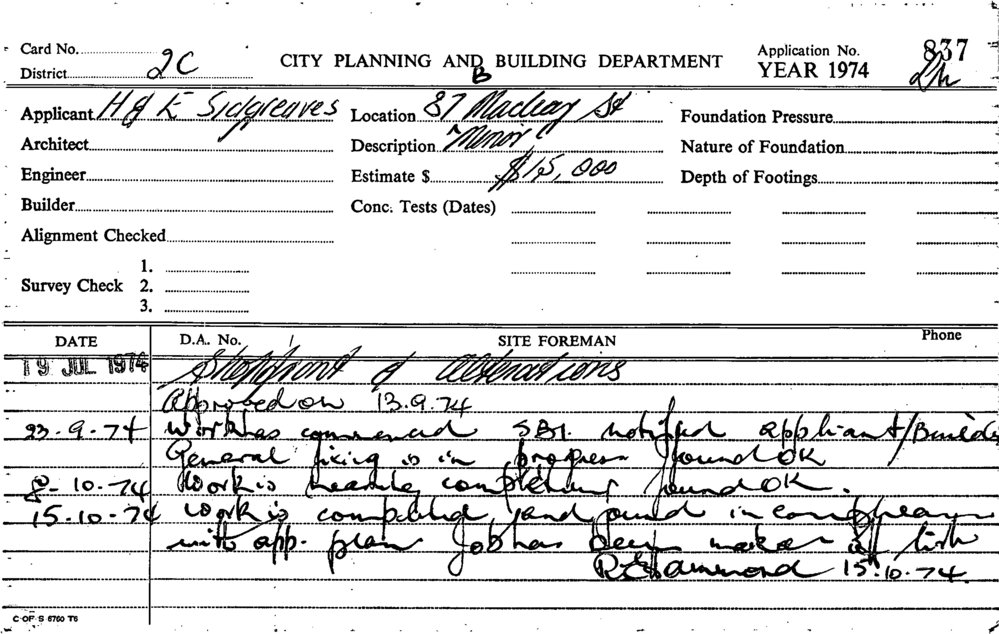 Card No. 2C
CITY PLANNING AND BUILDING DEPARTMENT
Application No. 837
District
B
YEAR 1974
Applicant H & E Sidgreaves
Location 87 Macleay St
Foundation Pressure
Architect
Description Minor
Nature of Foundation
Engineer
Estimate $ $15,000
Depth of Footings
Builder
Conc. Tests (Dates)
Alignment Checked
1.
Survey Check 2.
3.
DATE
D.A. No.
SITE FOREMAN
Phone
19 JUL 1974 Shopfront & alterations
Approved on 13.9.74
23-9-74 Work has commenced SBI. notified applicant/Builder
General fixing is in progress found OK
8-10-74 Work is nearing completing found OK.
15-10-74 work is completed and found in
with app. plan Job has been off list
R Hammond 15.10.74.
C OF S 6760 T6